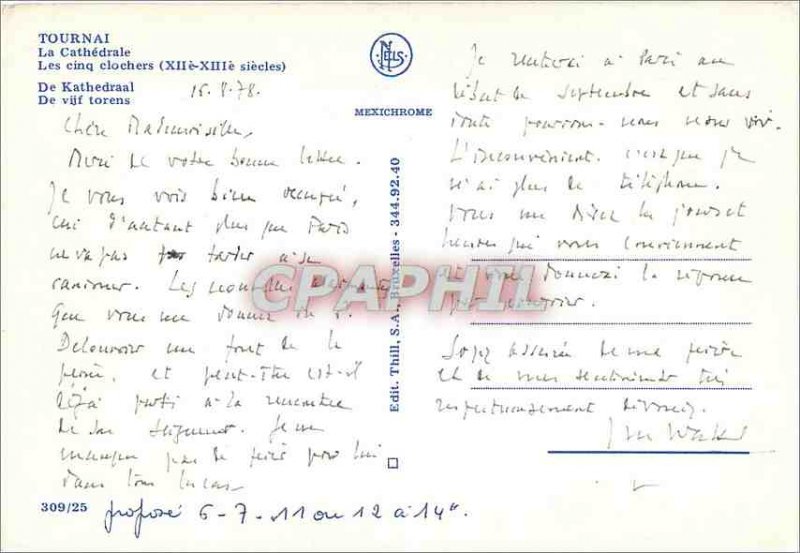 TOURNAI
La Cathédrale
Les cinq clochers (XIIè-XIIIè siècles)
De Kathedraal
De vijf torens
16.8.78.
Chère Mademoiselle,
Merci de votre bonne lettre.
Je vous vois bien occupée,
d'autant plus que Paris
ne va pas tarder à se
Les nouvelles
que vous me donnez de
me font de la
peine, et peut-être est-il
déjà parti à la rencontre
de son Seigneur. Je ne
manque pas de prier pour lui
dans tous les cas.
309/25
NELS
MEXICHROME
Edit. Thill, S.A., Bruxelles - 344.92.40
CPAPHIL
Je rentrerai à Paris au
début de septembre et sans
doute pourrons-nous nous voir.
L'inconvénient, c'est que je
n'ai plus de téléphone.
Vous me direz les jours et
heures qui vous conviennent
et vous donnerai la réponse
par courrier.
Soyez assurée de ma prière
et de mes sentiments très
respectueusement dévoués.
proposé 6-7-11 ou 12 à 14h.